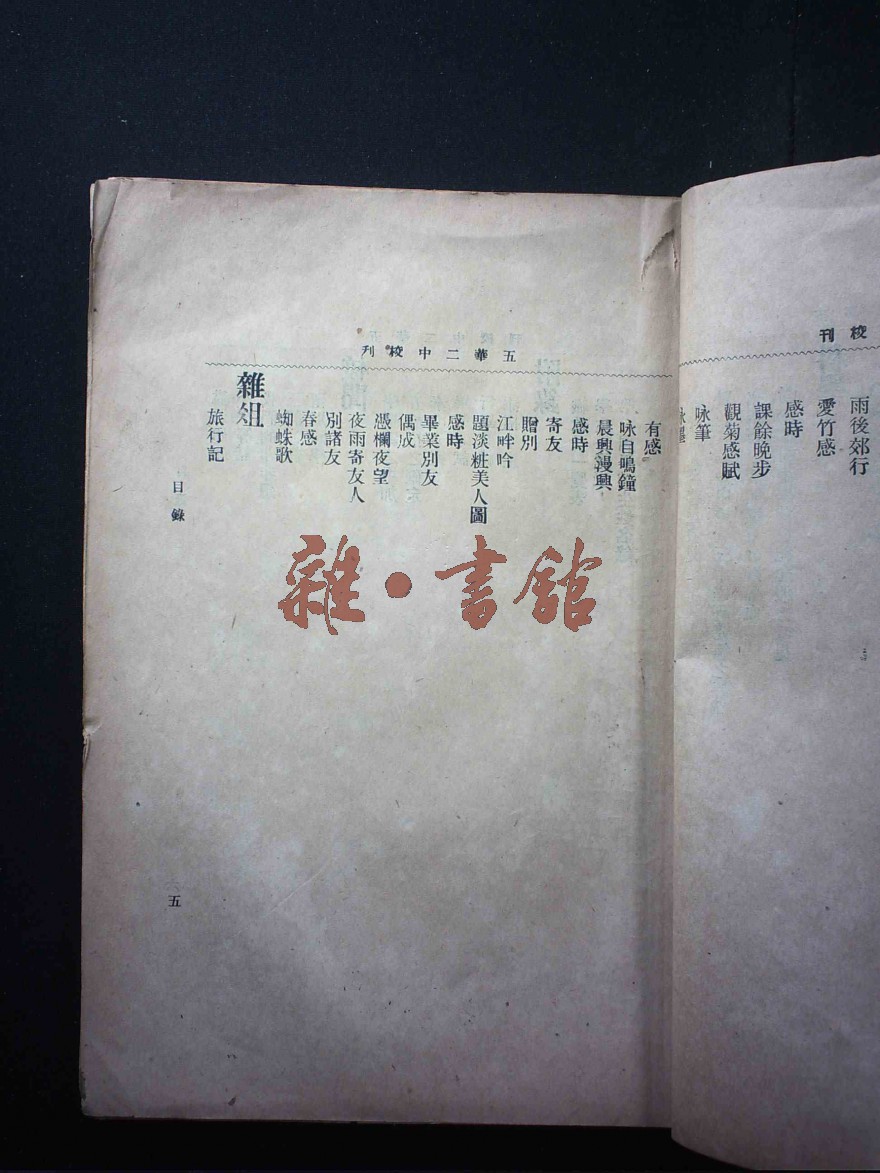 校刊
雨後郊行
愛竹感
感時
課餘晚步
觀菊感賦
咏筆
五華二中校刊
有感
咏自鳴鐘
晨興漫興
感時
寄友
贈別
江畔吟
題淡粧美人圖
感時
畢業別友
偶成
憑欄夜望
夜雨寄友人
別諸友
春感
蜘蛛歌
雜俎
旅行記
目錄
五
雜·書館